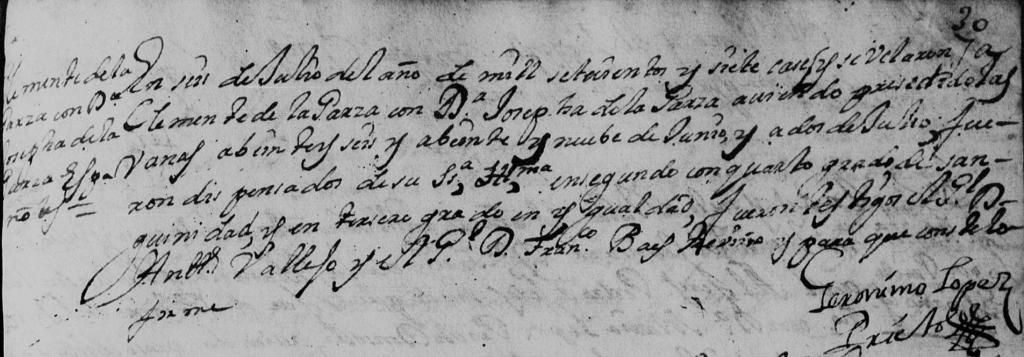 30
Clemente de la
Garza con Dª
Josepha de la
Garza Espa
ñoles =
En seis de Julio del año de mill setesientos y siete case y se velaron
Clemente de la Garza con Dª Josepha de la Garza aviendo presedido las
Vanas a beinte y seis y a beinte y nuebe de Junio, y a dos de Julio, fue-
ron dispensados de su Sª Illma en segundo con quarto grado de san-
guinidad, y en tersero grado en ygualdad, fueron testigos el Gl D.
Antto Vallejo y el Gl D. Franco Baes Treviño y para que conste lo
firme
Geronimo Lopez
Prieto